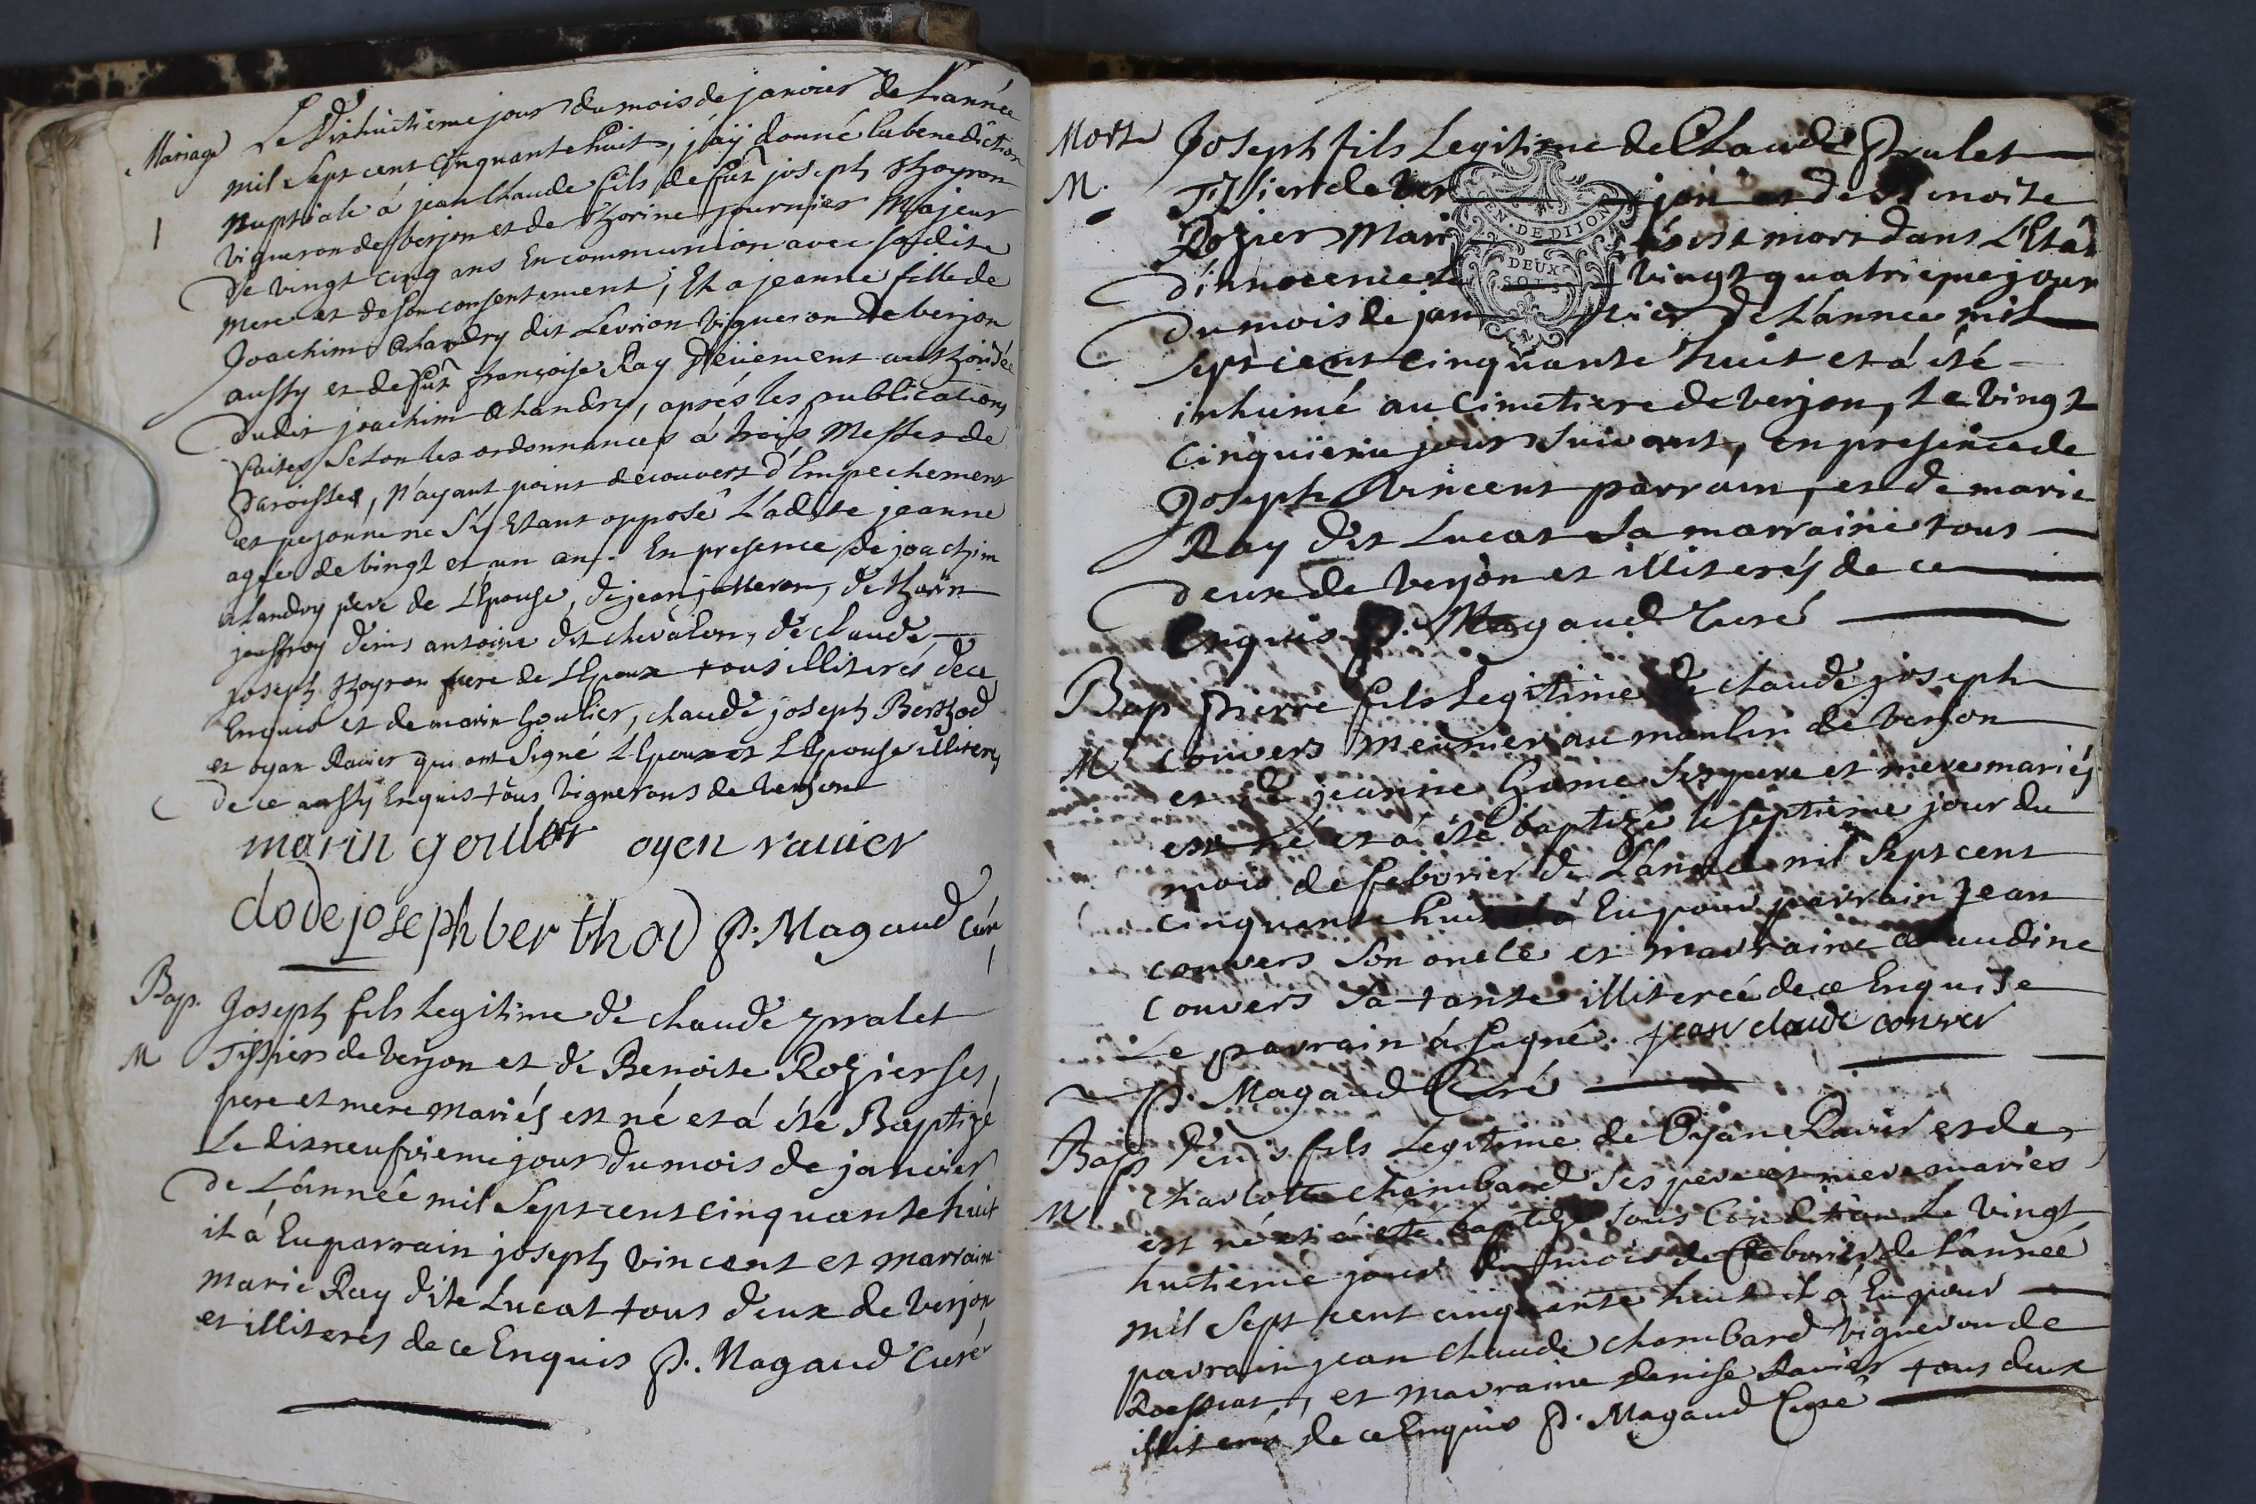 Mariage
Le Dixhuitieme jour du mois de janvier de L'année
mil Sept cent Cinquante huit, j'aÿ donné la benediction
nuptiale á jean Claude fils de fût joseph
vigneron de Verjon et de journier Majeur
De vingt cinq ans En communion avec sadite
Mere et de son consentement, Et a jeanne fille de
Joachim Chandry dit Levrion Vigneron De verjon
aussy et de fût françoise Ray Deüement
dudit joachim Chandry, aprés les publications
faites Selon les ordonnances á trois Messes de
Paroisses, n'ayant point decouvert d'Empechement
et personne ne S'ÿ Etant opposé L'adite jeanne
agée de vingt et un ans. En presence de joachim
Chandry pere de L'Epouse, de jean
jouffroy denis antoine dit chevalon, de claude
joseph frere de L'Epoux tous illiterés de ce
Enquis et de marin Goulier, claude joseph Berthod
et oyan Ravier qui ont Signé L'Epoux et L'Epouse illiterés
de ce aussy Enquis tous vignerons de verjon
marin goulier oyen rauier
clode joseph berthod P. Magaud Curé
Bap.
M
Joseph fils Legitime de claude pralet
Tissier de verjon et de Benoite Rozier ses
pere et mere mariés est né et á été Baptizé
Le dixneufvieme jour du mois de janvier
de L'année mil Sept cent cinquante huit
il á Eu parrain joseph vincent et marraine
marie Ray dite Lucat tous deux de verjon
et illiterés de ce Enquis P. Magaud Curé
Mort
M.
Joseph fils Legitime de Claude Pralet
Tissier de Verjon et de Benoite
Rozier Mariés est mort dans L'Etat
d'innocence Le vingt quatrieme jour
Du mois de janvier de L'année mil
Sept cent cinquante huit et á été
inhumé au Cimetiere de verjon, Le vingt
Cinquiéme jour Suivant, en presence de
Joseph Vincent parrain, et de marie
Ray dit Lucat Sa marraine tous
Deux de Verjon et illiterés de ce
Enquis P. Magaud Curé
EN. DE DIJON
DEUX
SOLS
Bap
M
Pierre fils Legitime de claude joseph
Convers Meunier au moulin de verjon
et de jeanne Game ses pere et mere mariés
est né et á été baptizé le septieme jour du
mois de febvrier de L'année mil Sept cent
cinquante huit il á Eu pour parrain jean
convers Son oncle et marraine claudine
Convers Sa tante illiterée de ce Enquise
Le parrain á signé. jean claude conver
P. Magaud Curé
Bap
M
Denis fils Legitime de Oyan Ravier et de
Charlotte Chambard Ses pere et mere mariés
est né et á été baptizé sous Condition Le vingt
huitieme jour du mois de febvrier de L'année
mil Sept cent cinquante huit il á Eu pour
parrain jean claude chambard vigneron de
Roissiat, et marraine denise Ravier tous deux
illiterés de ce Enquis P. Magaud Curé